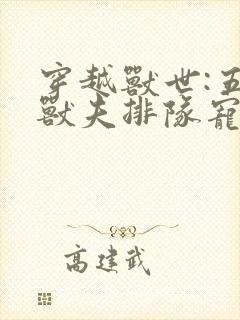 穿越獸世:五
獸夫排隊寵
高建武